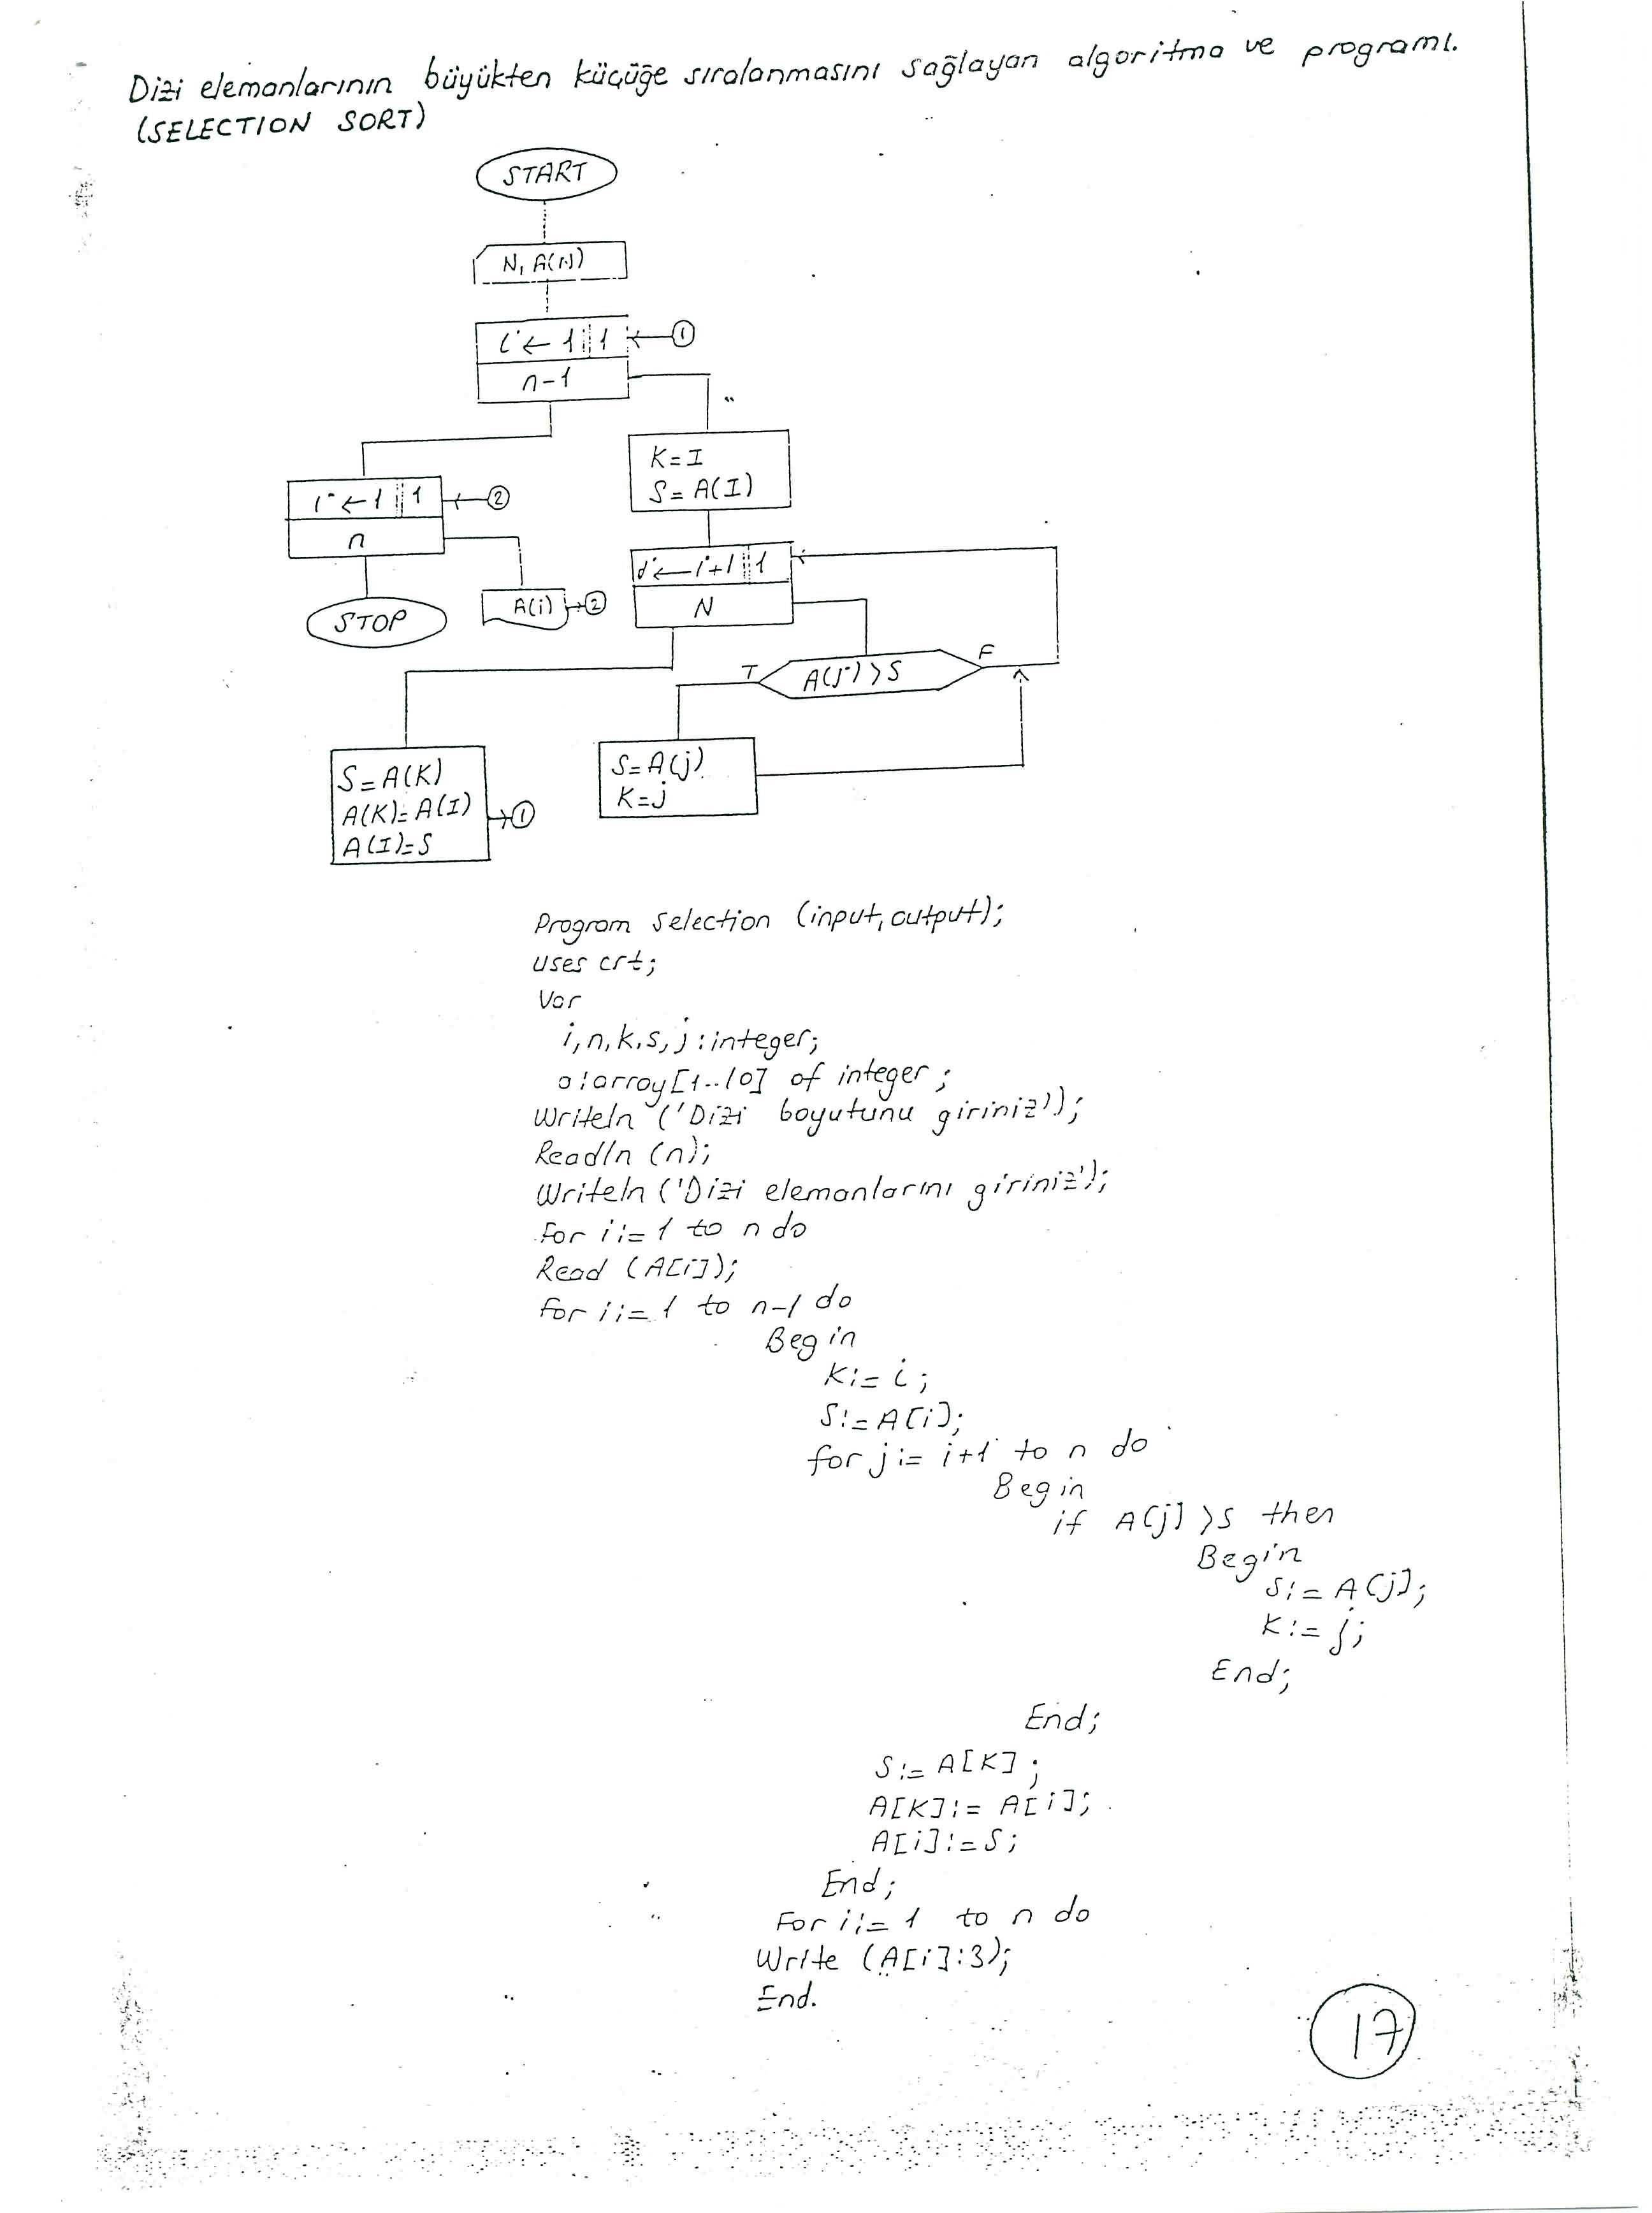 Dizi elemanlarının büyükten küçüğe sıralanmasını sağlayan algoritma ve programı.
(SELECTION SORT)
START
N, A(N)
i ← 1 1
①
n-1
K=I
S=A(I)
i ← 1 1
②
n
j ← i+1 1
N
A(i)
②
STOP
T
A(j)>S
F
S=A(K)
A(K)=A(I)
A(I)=S
①
S=A(j)
K=j
Program selection (input,output);
uses crt;
Var
i,n,k,s,j:integer;
a:array[1..10] of integer;
Writeln ('Dizi boyutunu giriniz');
Readln (n);
Writeln ('Dizi elemanlarını giriniz');
For i:=1 to n do
Read (A[i]);
for i:=1 to n-1 do
Begin
K:=i;
S:=A[i];
for j:=i+1 to n do
Begin
if A[j]>s then
Begin
s:=A[j];
K:=j;
End;
End;
S:=A[K];
A[K]:=A[i];
A[i]:=S;
End;
For i:=1 to n do
Write (A[i]:3);
End.
17